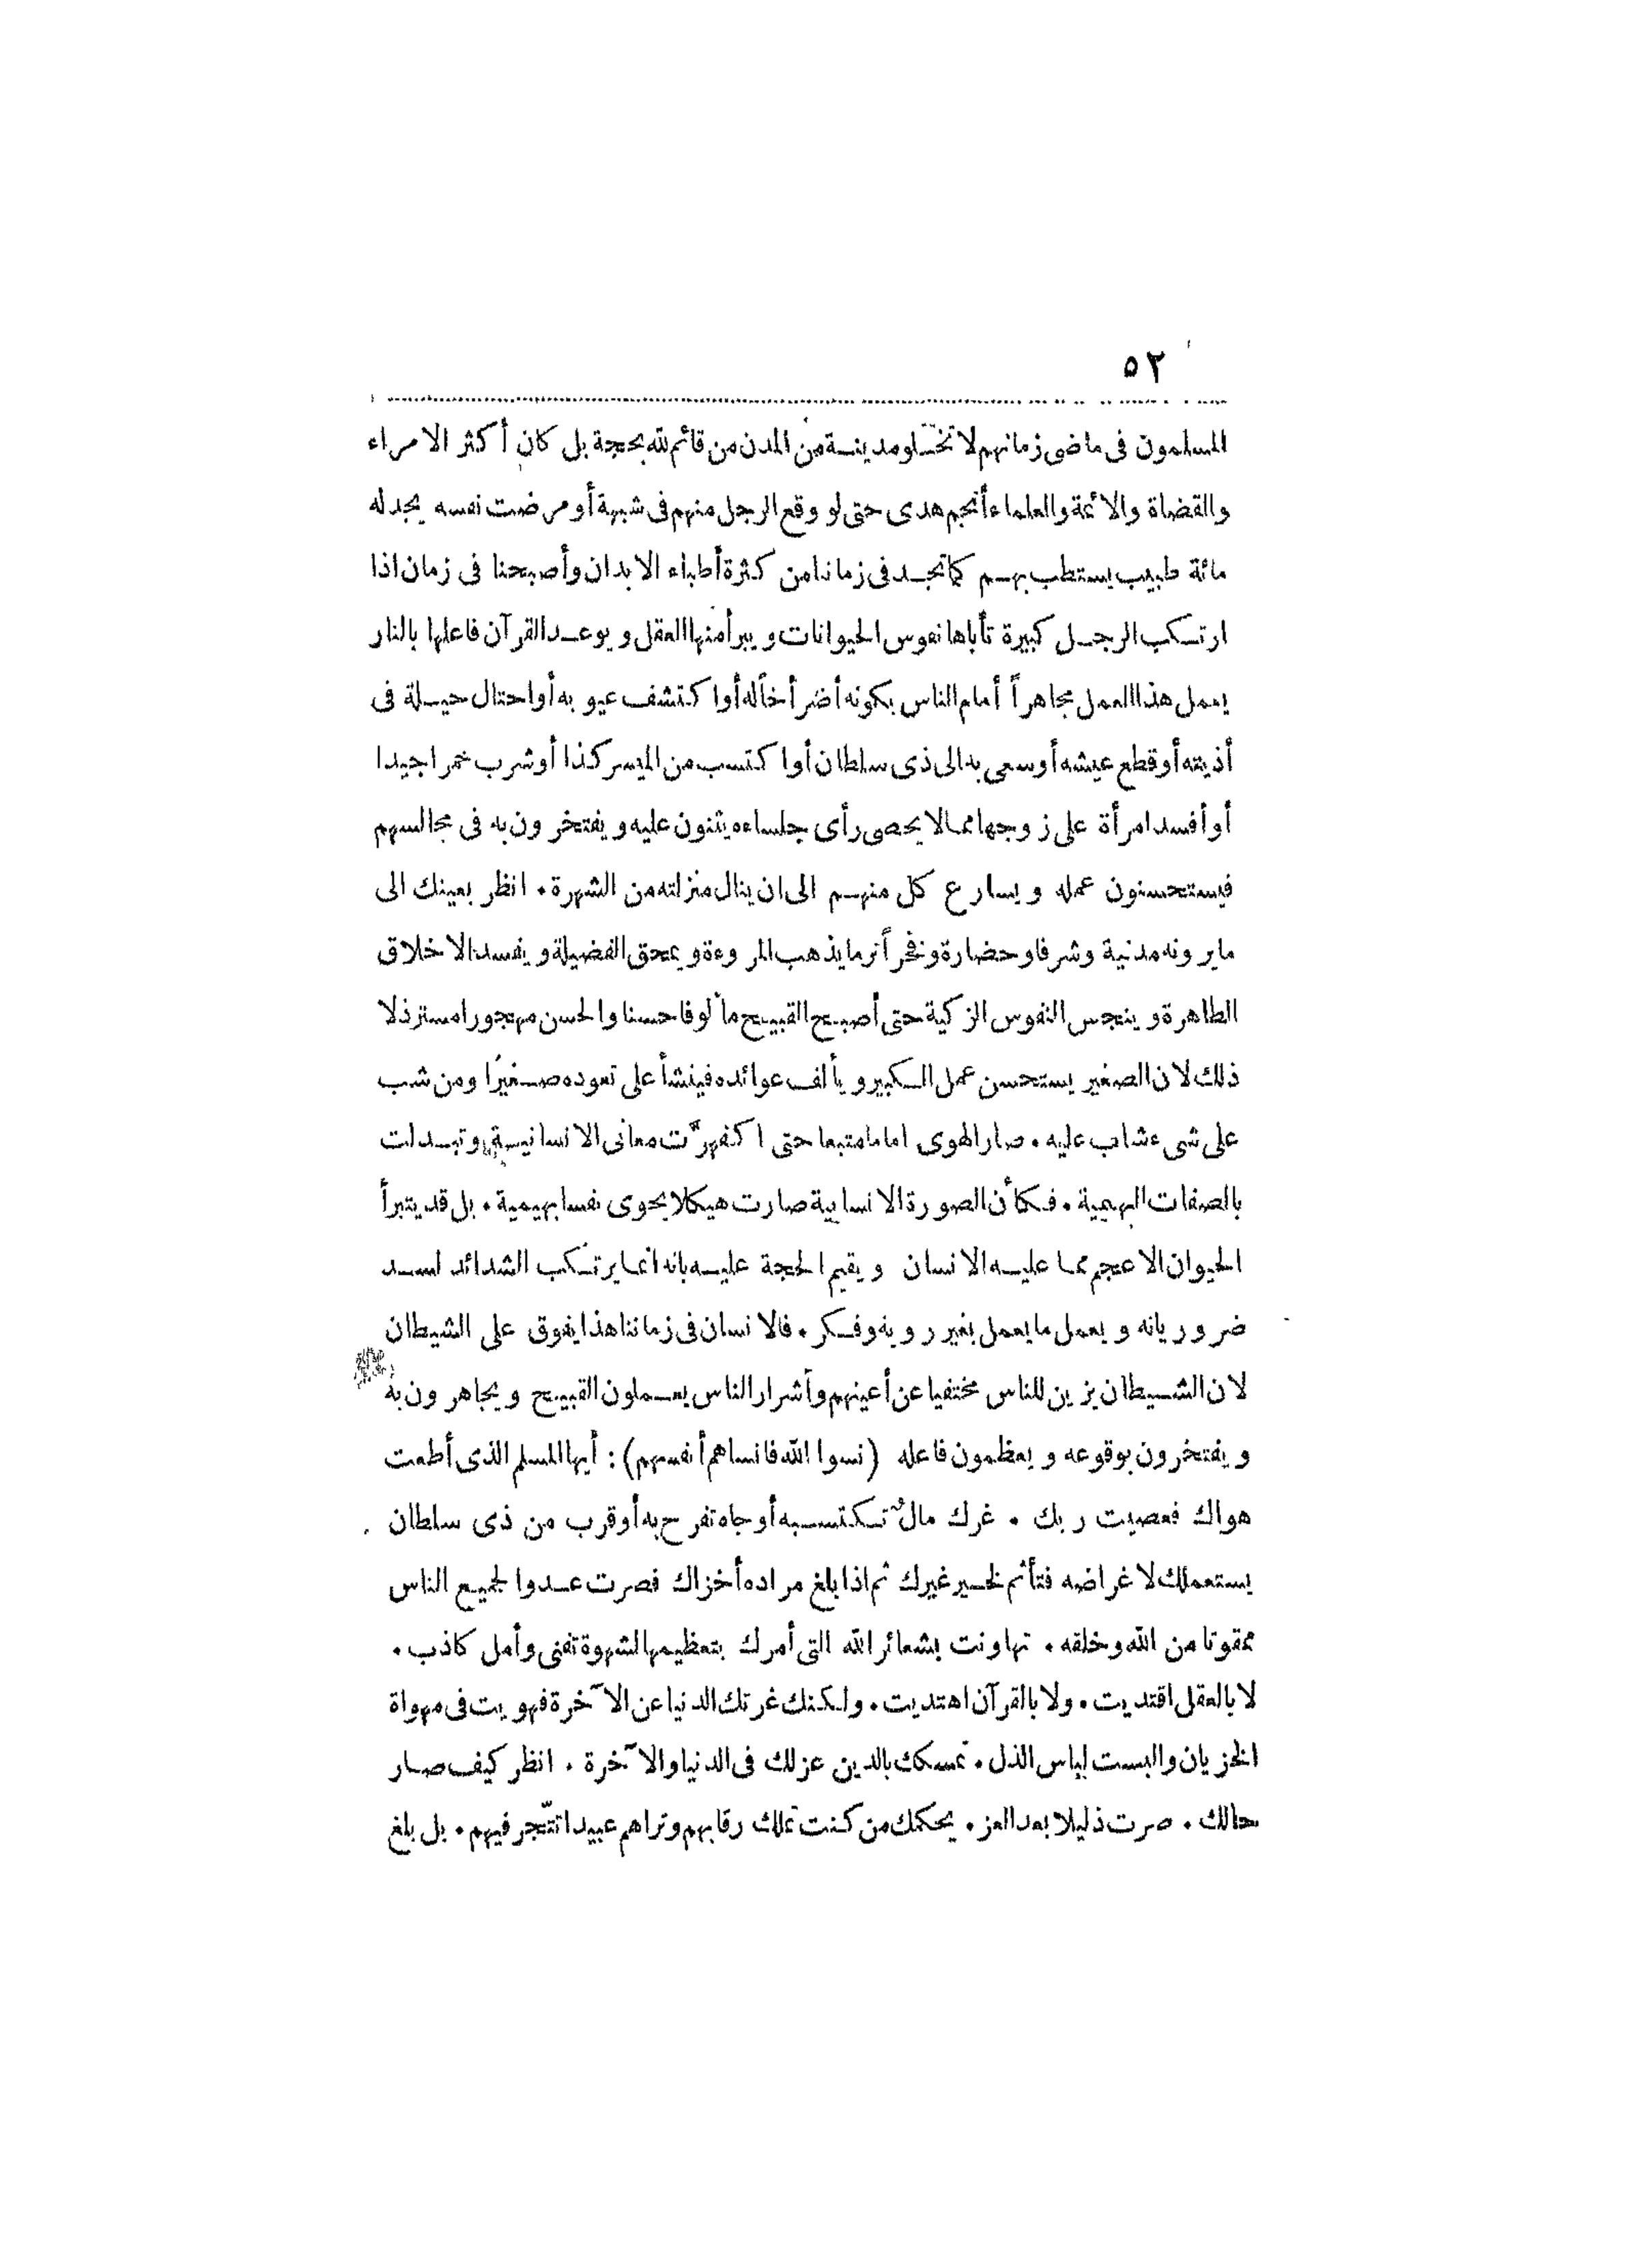 ٥٢
المسلمون فى ماضى زمانهم لا تخلو مدينة من المدن من قائم لله بحجة بل كان أكثر الامراء
والقضاة والائمة والعلماء أنجم هدى حتى لو وقع الرجل منهم فى شبهة أو مرضت نفسه يجد له
مائة طبيب يستطب بهم كما تجد فى زماننا من كثرة أطباء الابدان وأصبحنا فى زمان اذا
ارتكب الرجل كبيرة تأباها نفوس الحيوانات ويبرأ منها العقل ويوعد القرآن فاعلها بالنار
يعمل هذا العمل مجاهراً أمام الناس بكونه أضر أخاً له أو اكتشف عيوبه أو احتال حيلة فى
أذيته أو قطع عيشه أو سعى به الى ذى سلطان أو اكتسب من الميسر كذا أو شرب خمرا جيدا
أو أفسد امرأة على زوجها مما لا يحصى رأى جلساءه يثنون عليه ويفتخرون به فى مجالسهم
فيستحسنون عمله ويسارع كل منهم الى ان ينال منزلته من الشهرة . انظر بعينك الى
ما يرونه مدنية وشرفا وحضارة وفخراً تر ما يذهب المروءة ويمحق الفضيلة ويفسد الاخلاق
الطاهرة وينجس النفوس الزكية حتى أصبح القبيح مألوفا حسنا والحسن مهجورا مسترذلا
ذلك لان الصغير يستحسن عمل الكبير ويألف عوائده فينشأ على تعوده صغيرًا ومن شب
على شىء شاب عليه . صار الهوى اماما متبعا حتى اكفهرّت معانى الانسانية وتبدلت
بالصفات البهيمية . فكأن الصورة الانسانية صارت هيكلا يحوى نفسا بهيمية . بل قد يتبرأ
الحيوان الاعجم مما عليه الانسان ويقيم الحجة عليه بانه انما يرتكب الشدائد لسد
ضرورياته ويعمل ما يعمل بغير روية وفكر . فالانسان فى زماننا هذا يفوق على الشيطان
لان الشيطان يزين للناس مختفيا عن أعينهم وأشرار الناس يعملون القبيح ويجاهرون به
ويفتخرون بوقوعه ويعظمون فاعله (نسوا الله فانساهم أنفسهم) : أيها المسلم الذى أطعت
هواك فعصيت ربك . غرك مالٌ تكتسبه أو جاه تفرح به أو قرب من ذى سلطان
يستعملك لاغراضه فتأثم لخير غيرك ثم اذا بلغ مراده أخزاك فصرت عدوا لجميع الناس
ممقوتا من الله وخلقه . تهاونت بشعائر الله التى أمرك بتعظيمها لشهوة تفنى وأمل كاذب .
لا بالعقل اقتديت . ولا بالقرآن اهتديت . ولكنك غرتك الدنيا عن الآخرة فهويت فى مهواة
الخزيان والبست لباس الذل . تمسكك بالدين عز لك فى الدنيا والآخرة . انظر كيف صار
حالك . صرت ذليلا بعد العز . يحكمك من كنت تملك رقابهم وتراهم عبيدا تتّجر فيهم . بل بلغ